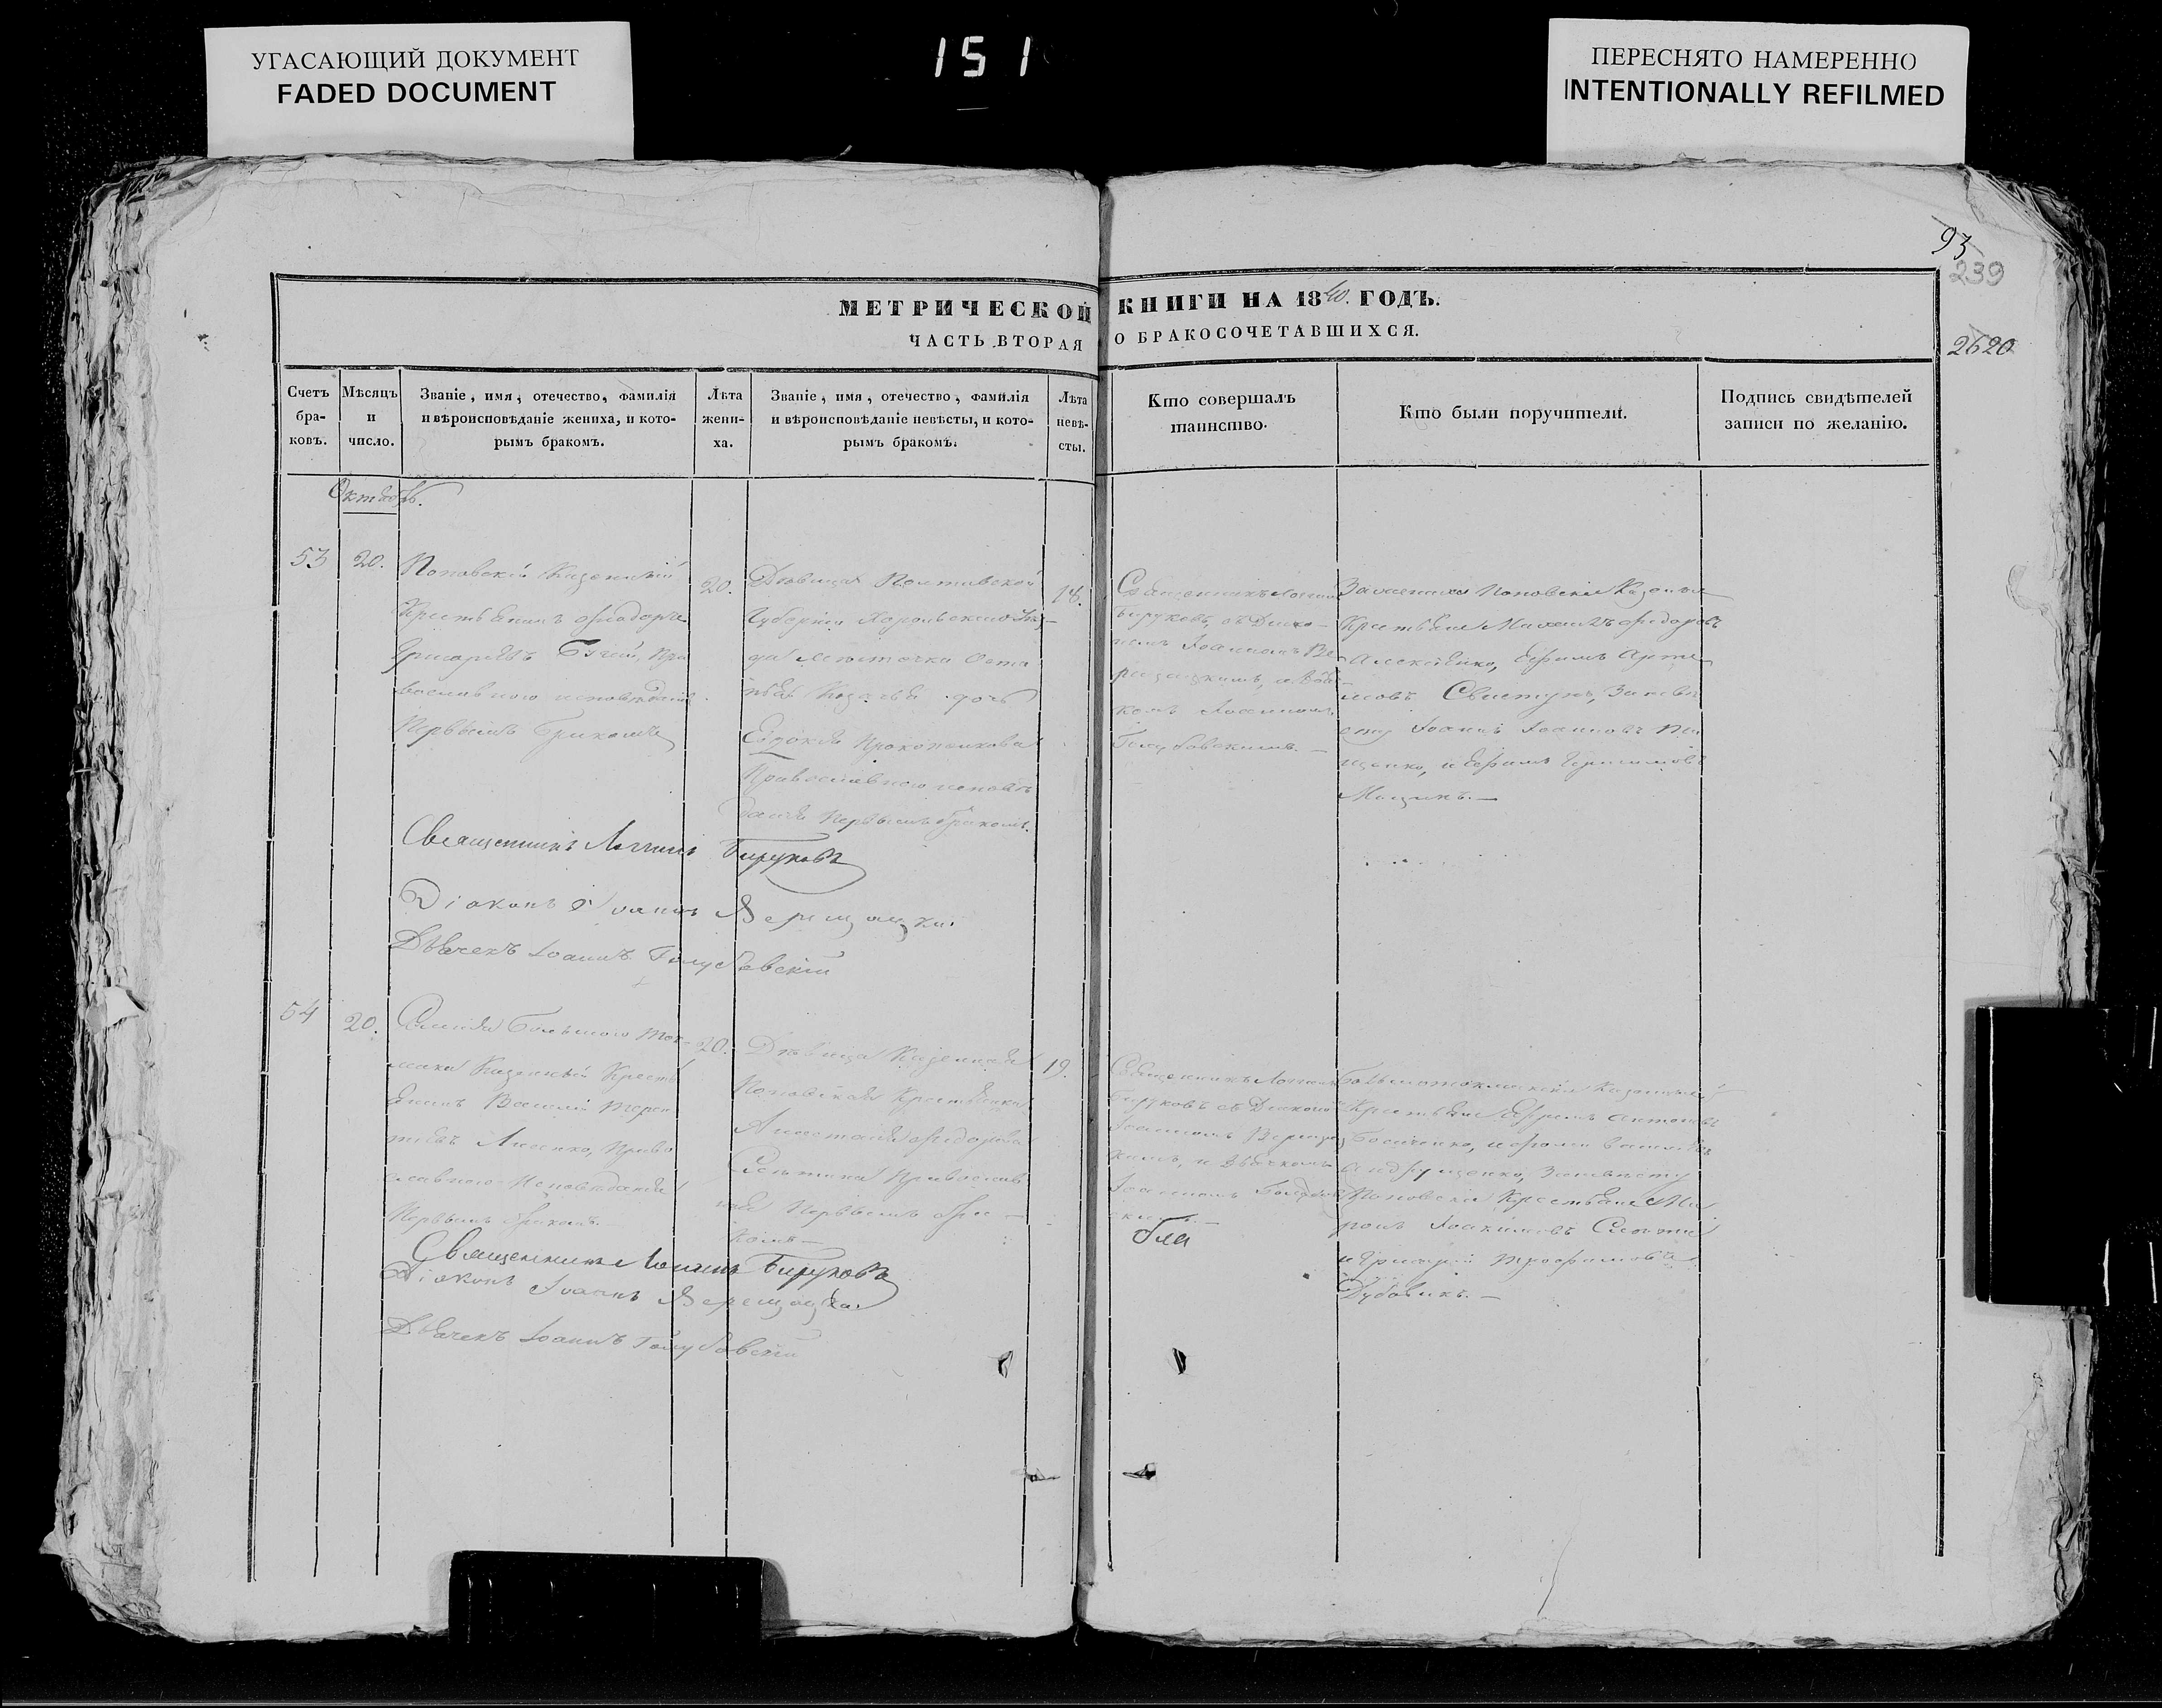 УГАСАЮЩИЙ ДОКУМЕНТ
FADED DOCUMENT
151
ПЕРЕСНЯТО НАМЕРЕННО
INTENTIONALLY REFILMED
93
239
2620
МЕТРИЧЕСКОЙ КНИГИ НА 1840. ГОДЪ.
ЧАСТЬ ВТОРАЯ О БРАКОСОЧЕТАВШИХСЯ.
Счетъ бра-ковъ.
Мѣсяцъ и число.
Званіе, имя, отечество, фамилія и вѣроисповѣданіе жениха, и кото-рымъ бракомъ.
Лѣта жени-ха.
Званіе, имя, отечество, фамилія и вѣроисповѣданіе невѣсты, и кото-рымъ бракомъ.
Лѣта невѣ-сты.
Кто совершалъ таинство.
Кто были поручители.
Подпись свидѣтелей записи по желанію.
Октябрь.
53
20.
Поповскій Казенный
Крестьянинъ
Григорьевъ Пра
вославного исповѣданія
Первымъ бракомъ
20.
Дѣвица Полтавской
Губерніи Хорольского Уѣз-
да мѣстечка
Козачья дочь
Евдокія Прокопенкова
Православного исповѣ
данія Первымъ бракомъ.
18.
Священникъ Логгинъ
Бируковъ, съ Діако-
номъ Іоанномъ Ве
рещацкимъ, и Дьяч-
комъ Іоанномъ
Голубовскимъ.—
За жениха Поповскіе Казенные
Крестьяне Михаилъ Федоровъ
Алексѣенко, Ефимъ Арте
мовъ Свистунъ, За невѣ
сту Іоаннъ Іоанновъ
и Ефимъ Герасимовъ
Священникъ Логгинъ Бируковъ
Діаконъ Іоаннъ Верещацкій
Дьячекъ Іоаннъ Голубовскій
54
20.
Селенія Большого Ток-
мака Казенный Кресть
янинъ Василій Терен
тіевъ Лисенко, Право
славного Исповѣданія
Первымъ бракомъ.—
20.
Дѣвица Казенная
Поповская Крестьянка
Анастасія Федорова
Православ
ная Первымъ бра—
комъ—
19.
Священникъ Логгинъ
Бируковъ съ Діакономъ
Іоанномъ Верещац
кимъ, и Дьячкомъ
Іоанномъ Голубов
скимъ.—
Большотокмакскіе Казенные
Крестьяне Ефремъ Антоновъ
и Фома Васильевъ
Андрущенко, За невѣсту
Поповскіе Крестьяне Ми
ронъ Іоакимовъ
и Григорій Трофимовъ
Дубовикъ.—
Священникъ Логгинъ Бируковъ
Діаконъ Іоаннъ Верещацкій
Дьячекъ Іоаннъ Голубовскій